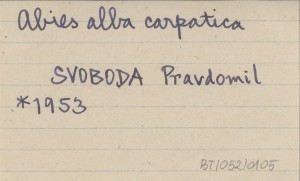 Abies alba carpatica
SVOBODA Pravdomil
*1953
BT/052/0105